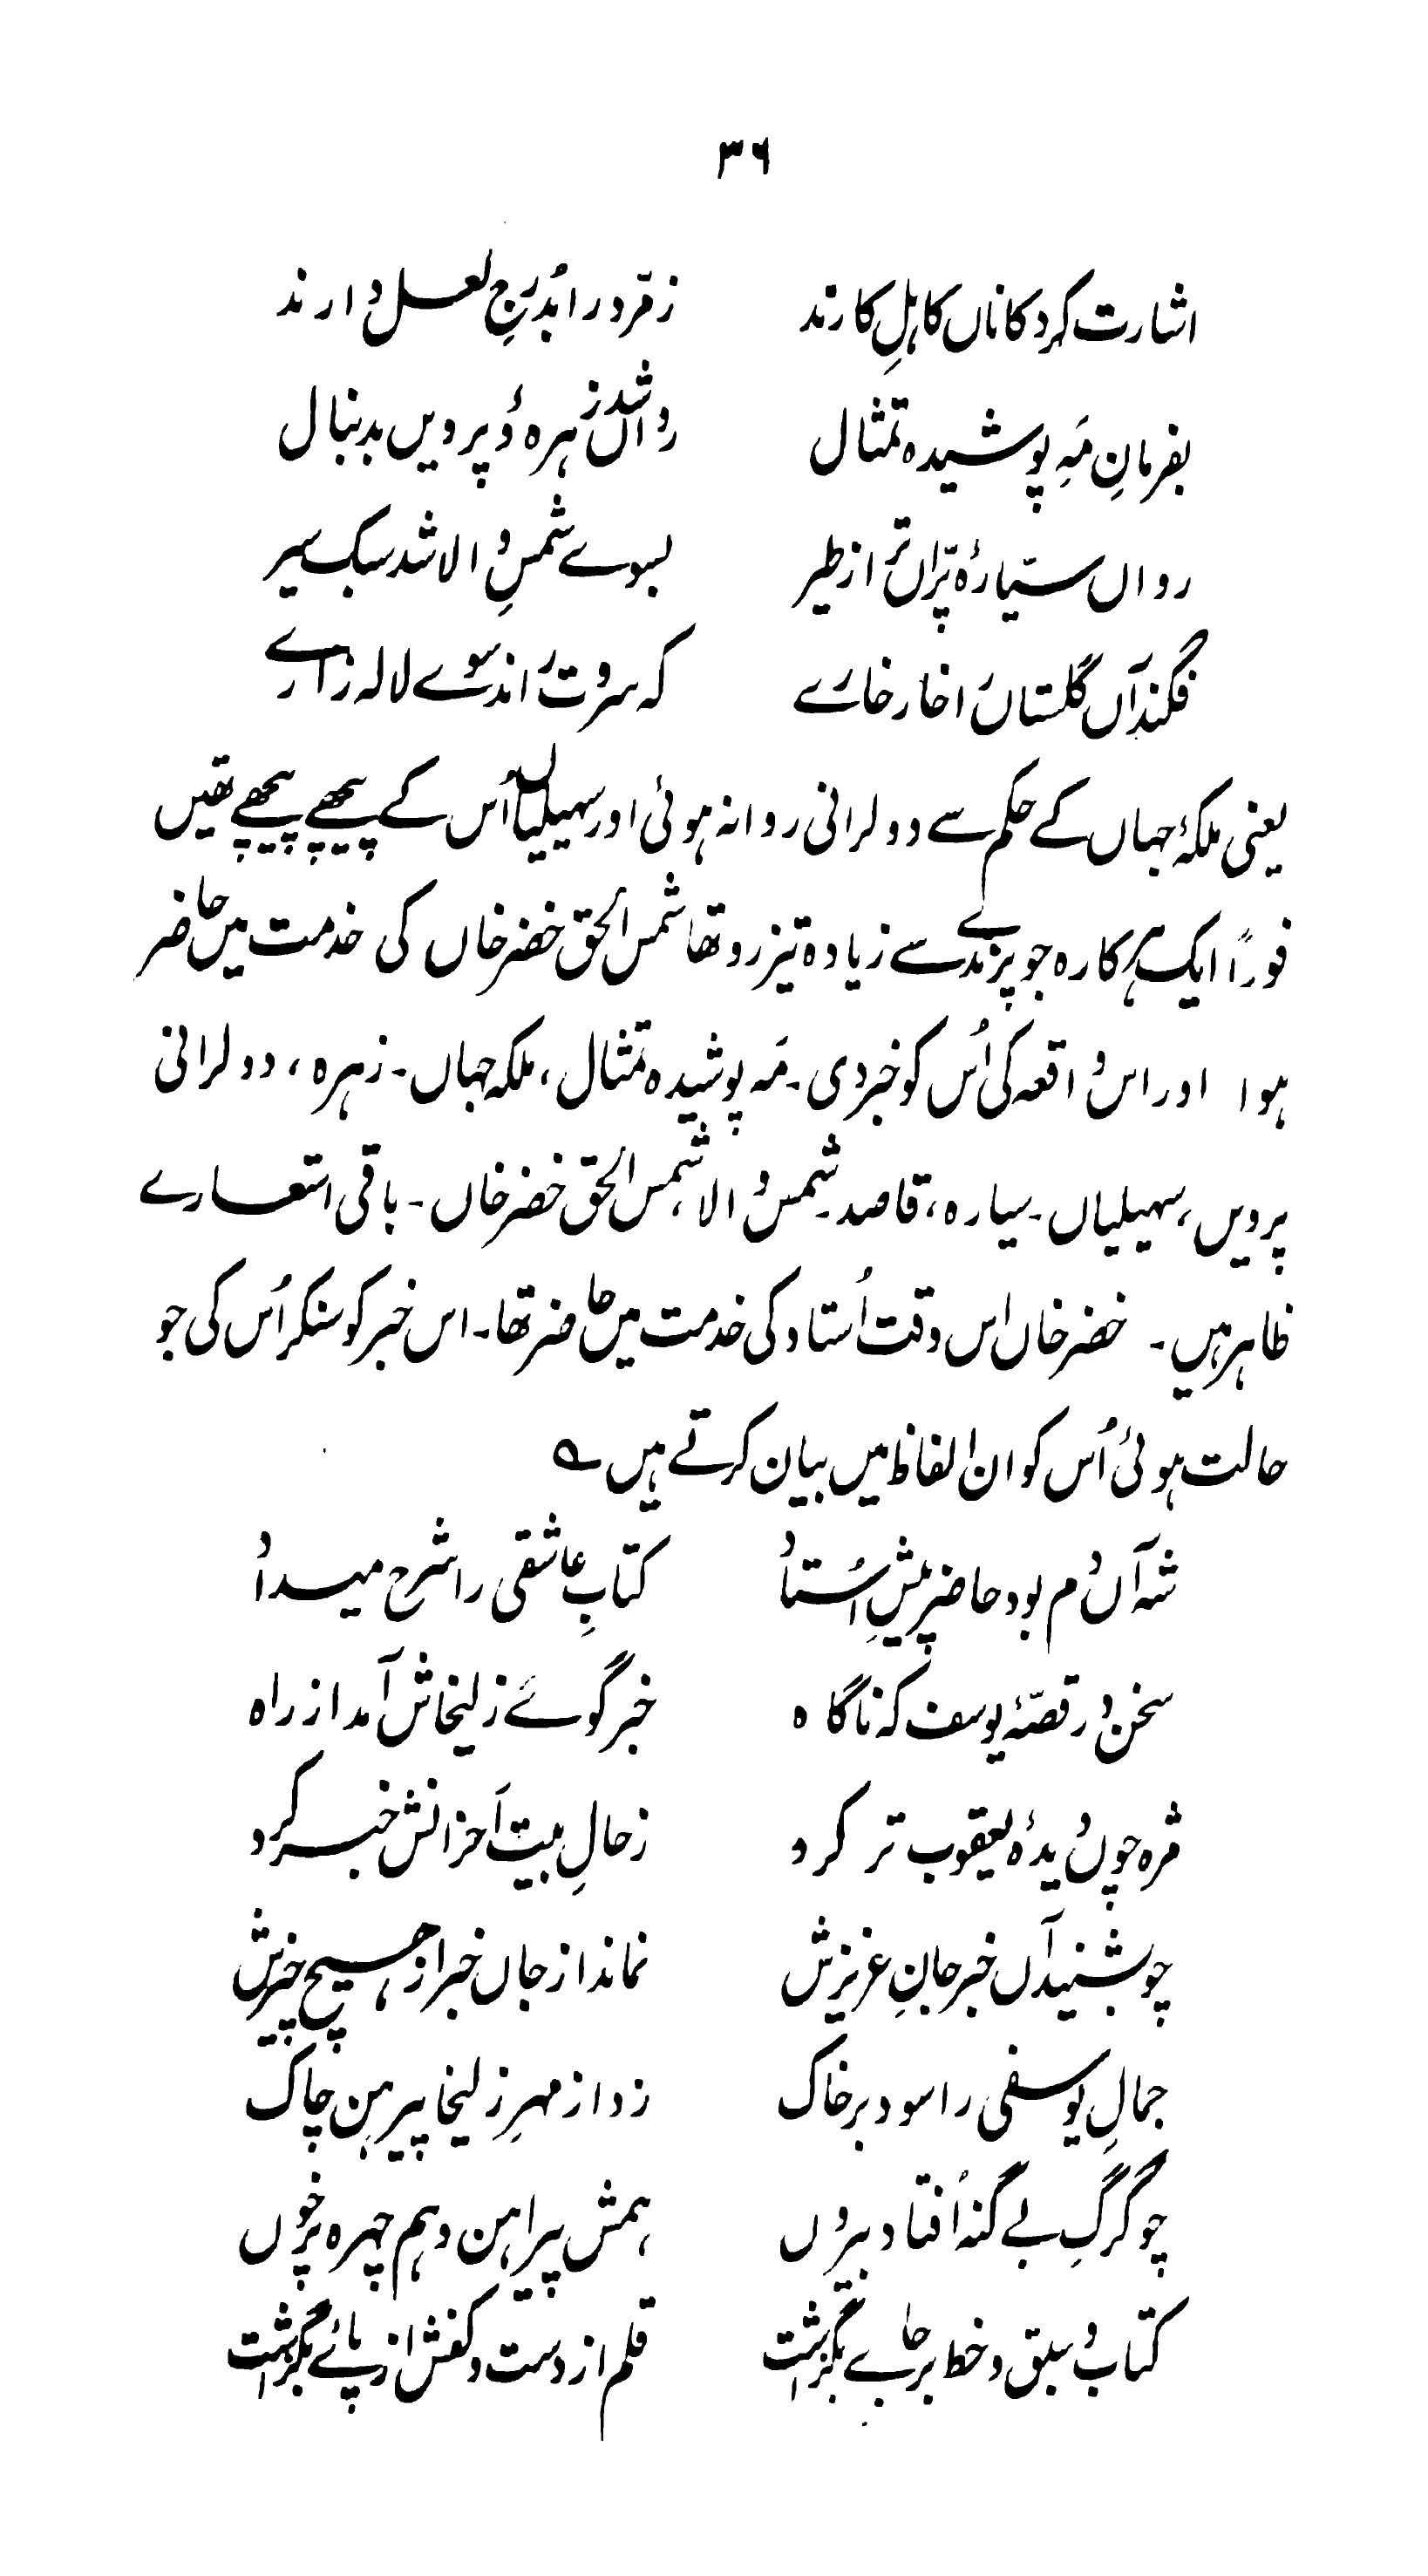 ۳۶
اشارت کرد کاناں کاہلِ کارند زقرّ در را بدُرجِ لعل دارند
بفرمانِ مَہِ پوشیدہ تمثال رواں شد زہرہ و پرویں بدنبال
رواں ستیارۂ پرّاں تر از طیر بسوے شمسِ والا شد سبک سیر
فگند آں گلستاں را خار خارے کہ سروت راند سوے لالہ زارے
یعنی ملکۂ جہاں کے حکم سے دولرانی روانہ ہوئی اور سہیلیاں اُس کے پیچھے پیچھے تھیں
فوراً ایک ہرکارہ جو پرندے سے زیادہ تیز رو تھا شمس الحق خضر خاں کی خدمت میں حاضر
ہوا اور اس واقعہ کی اُس کو خبر دی۔ مَہ پوشیدہ تمثال، ملکہ جہاں۔ زہرہ، دولرانی
پرویں، سہیلیاں۔ سیارہ، قاصد۔ شمس والا، شمس الحق خضر خاں۔ باقی استعارے
ظاہر ہیں۔ خضر خاں اس وقت اُستاد کی خدمت میں حاضر تھا۔ اس خبر کو سنکر اُس کی جو
حالت ہوئی اُس کو ان الفاظ میں بیان کرتے ہیں ؎
شہ آں دم بود حاضر پیشِ اُستاد کتابِ عاشقی را شرح میداد
سخن در قصّۂ یوسف کہ ناگاہ خبر گوئے زلیخاش آمد از راہ
مژہ چوں دیدۂ یعقوب تر کرد زحالِ بیت اَحزانش خبر کرد
چو بشنید آں خبر جانِ عزیزش نماند از جاں خبر از ہیچ چیزش
جمالِ یوسفی را سود بر خاک زد از مہرِ زلیخا پیرہن چاک
چو گرگِ بے گنہ اُفتاد بیروں ہمش پیراہن و ہم چہرہ پُر خوں
کتاب و سبق و خط بر جاے بگزاشت قلم از دست و کفش از پائے بگزاشت